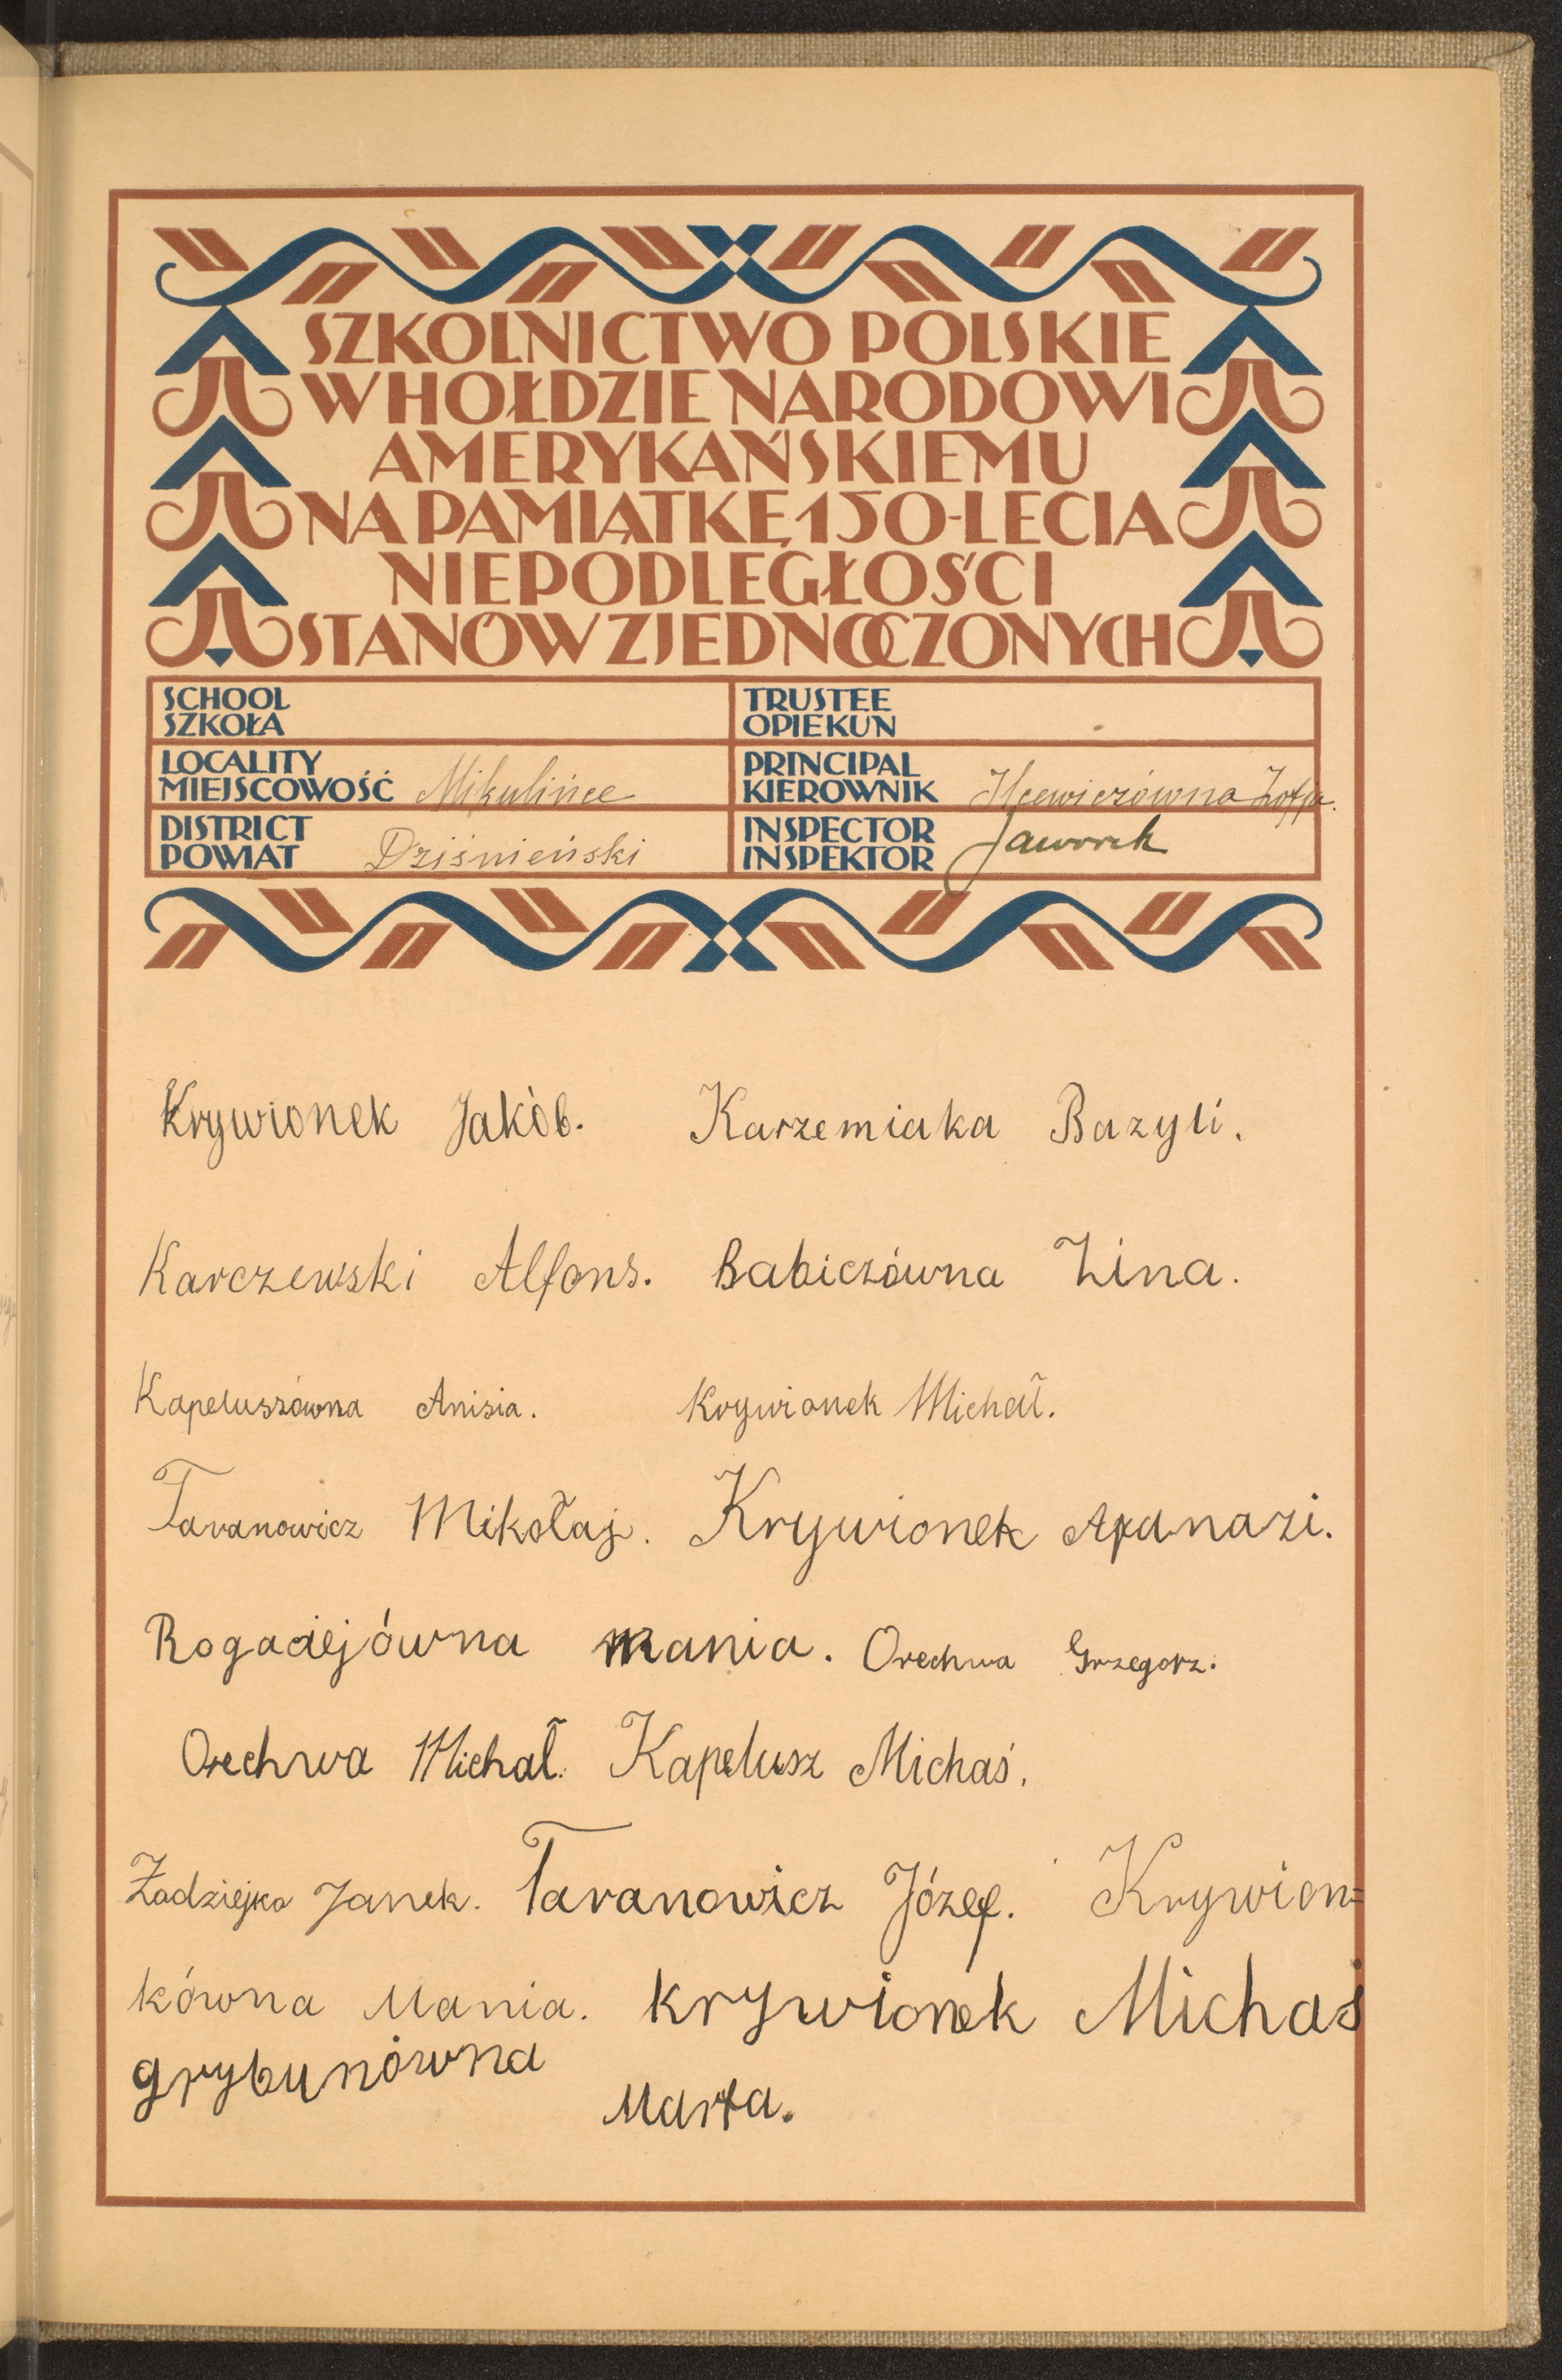 SZKOLNICTWO POLSKIE
W HOŁDZIE NARODOWI
AMERYKAŃSKIEMU
NA PAMIĄTKĘ 150-LECIA
NIEPODLEGŁOŚCI
STANÓW ZJEDNOCZONYCH
SCHOOL
SZKOŁA
TRUSTEE
OPIEKUN
LOCALITY
MIEJSCOWOŚĆ Mikulińce
PRINCIPAL
KIEROWNIK Zofja.
DISTRICT
POWIAT Dziśnieński
INSPECTOR
INSPEKTOR Jaworek
Krywionek Jakób. Karzemiaka Bazyli.
Karczewski Alfons. Babiczówna Zina.
Kapeluszówna Anisia. Krywionek Michał.
Taranowicz Mikołaj. Krywionek Apanazi.
Rogaciejówna Mania. Orechwa Grzegorz.
Orechwa Michał. Kapelusz Michaś.
Żadziejko Janek. Taranowicz Józef. Krywion=
kówna Mania. Krywionek Michaś
grybunówna
Marta.